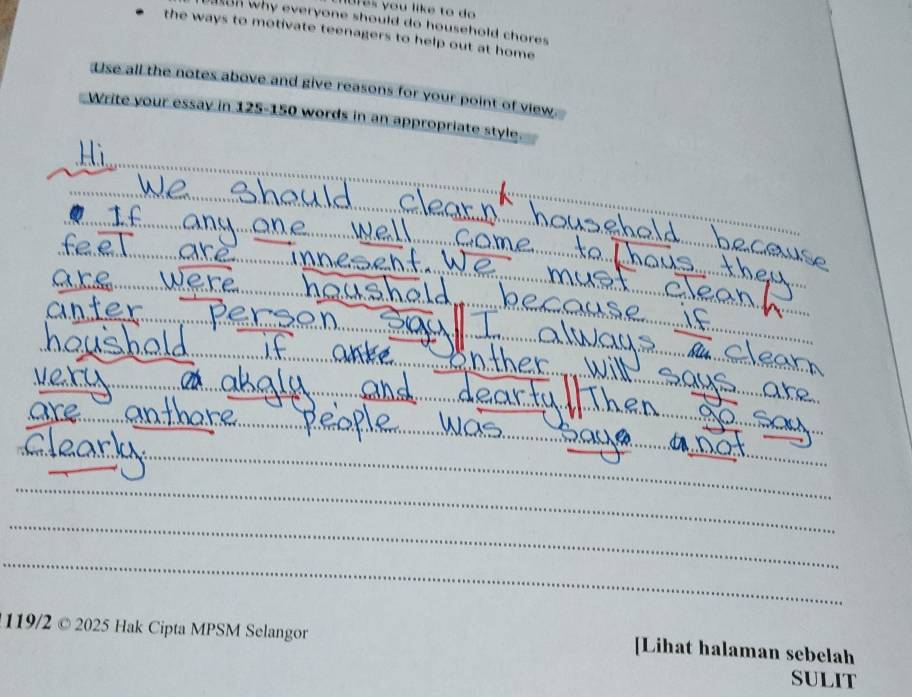 chores you like to do
reason why everyone should do household chores
• the ways to motivate teenagers to help out at home
Use all the notes above and give reasons for your point of view.
Write your essay in 125-150 words in an appropriate style.
Hi
We should clearn household because
If any one well come to hous they
feel are innesent. We must clean
are were houshold because if
anter person say I always clearn
houshold if anther will says are
very akgly and dearty Then go say
are anthore people was saye not
clearly.
119/2 © 2025 Hak Cipta MPSM Selangor
[Lihat halaman sebelah
SULIT